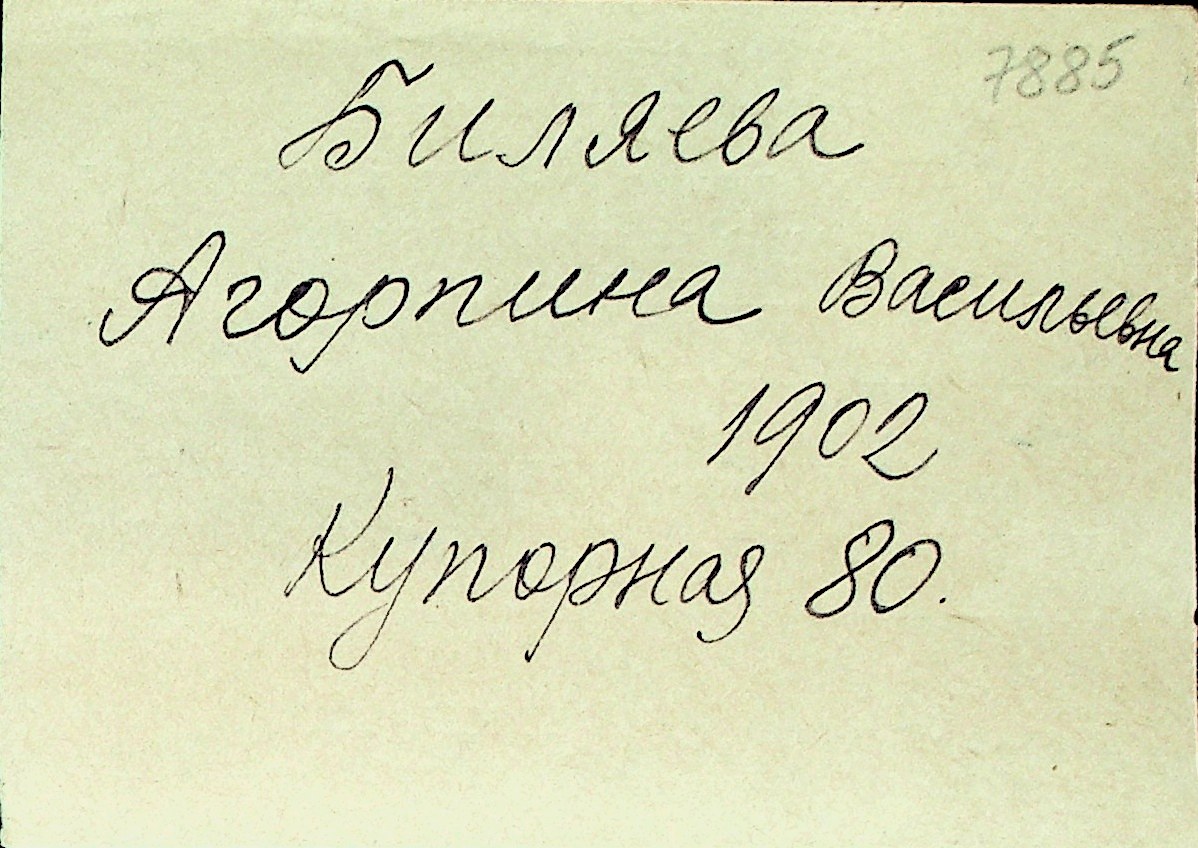 7885
Биляева
Агорпина Васильевна
1902
Купорная 80.